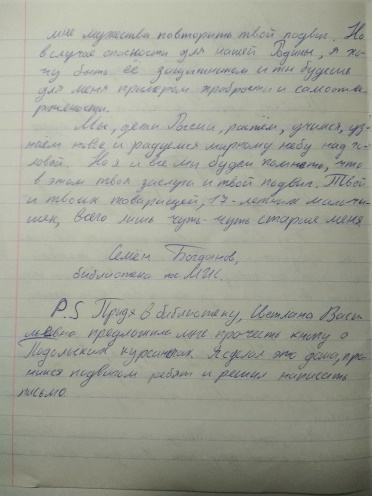 мне мужества повторить твой подвиг. Но
в случае опасности для нашей Родины, я хо-
чу быть её защитником и ты будешь
для меня примером храбрости и самоотвер-
женности.
Мы, дети России, растём, учимся, гу-
ляем и радуемся мирному небу над го-
ловой. Но я и все мы будем помнить, что
в этом твоя заслуга и твой подвиг. Твой
и твоих товарищей, 17-летних мальчи-
шек, всего лишь чуть-чуть старше меня
Семен Богданов,
библиотека
P.S Придя в библиотеку, Светлана Васи
льевна предложила мне прочесть книгу о
Подольских курсантах. Я сделал это дома, про-
никся подвигом ребят и решил написать
письмо.